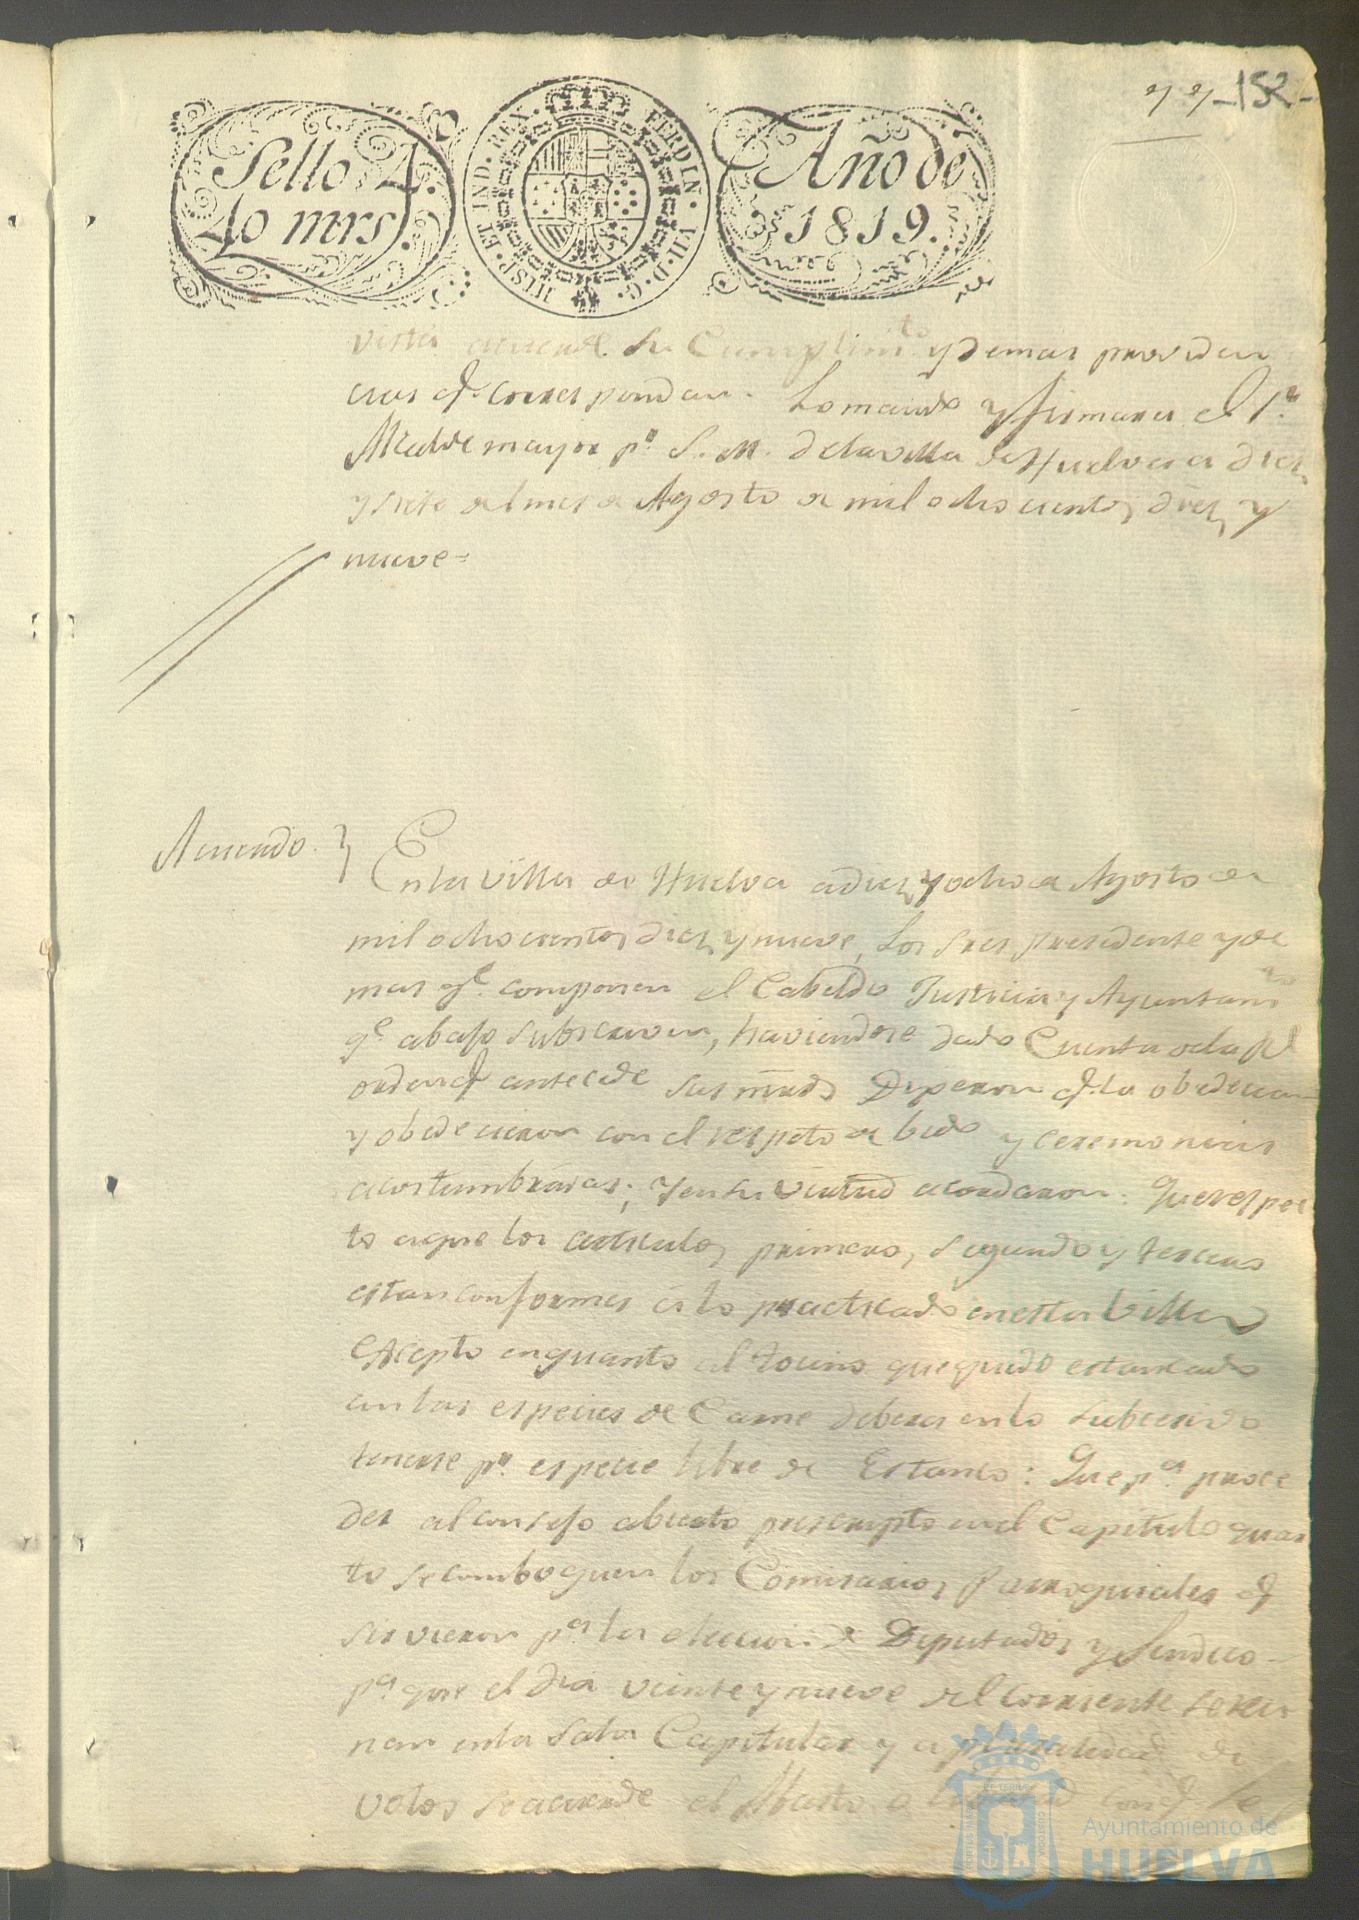 77 -152-
Sello 4.
40 mrs.
HISP. ET IND. REX. FERDIN. VII. D. G.
Año de
1819.
vista acuerde su Cumplimto. y demas providen
cias q. correspondan. Lo mando y firmara el Sr.
Alcalde mayor pr. S. M. dela villa de Huelva a diez
y siete del mes de Agosto de mil ochocientos diez y
nueve=
Acuerdo.
En la Villa de Huelva a diez y ocho de Agosto de
mil ochocientos diez y nueve, Los Sres presidente y de
mas qe. componen el Cabildo Justicia y Ayuntamto
qe. abajo subscriven, haviendose dado Cuenta de la Rl
orden q antecede sus mrds Dijeron q. la obedecian
y obedecieron con el respeto de bido y ceremonias
acostumbradas; y en su virtud acordaron: Que respec
to a que los articulos primero, segundo y tercero
estan conformes a lo practicado en esta Villa
excepto en quanto al tocino que quedó estancado
en las especies de Carne debera en lo subcesivo
tenerse pr. especie libre de Estanco: Que pa. proce
der al consejo abierto prescripto en el Capitulo quar
to se comboquen los Comisarios Parroquiales q
sirvieron pa. la eleccion de Diputados y Sindico
pa. que el dia veinte y nueve del corriente se reu
nan en la Sala Capitular y a pluralidad de
votos se acuerde el Abasto o con q. se
Ayuntamiento de
HUELVA